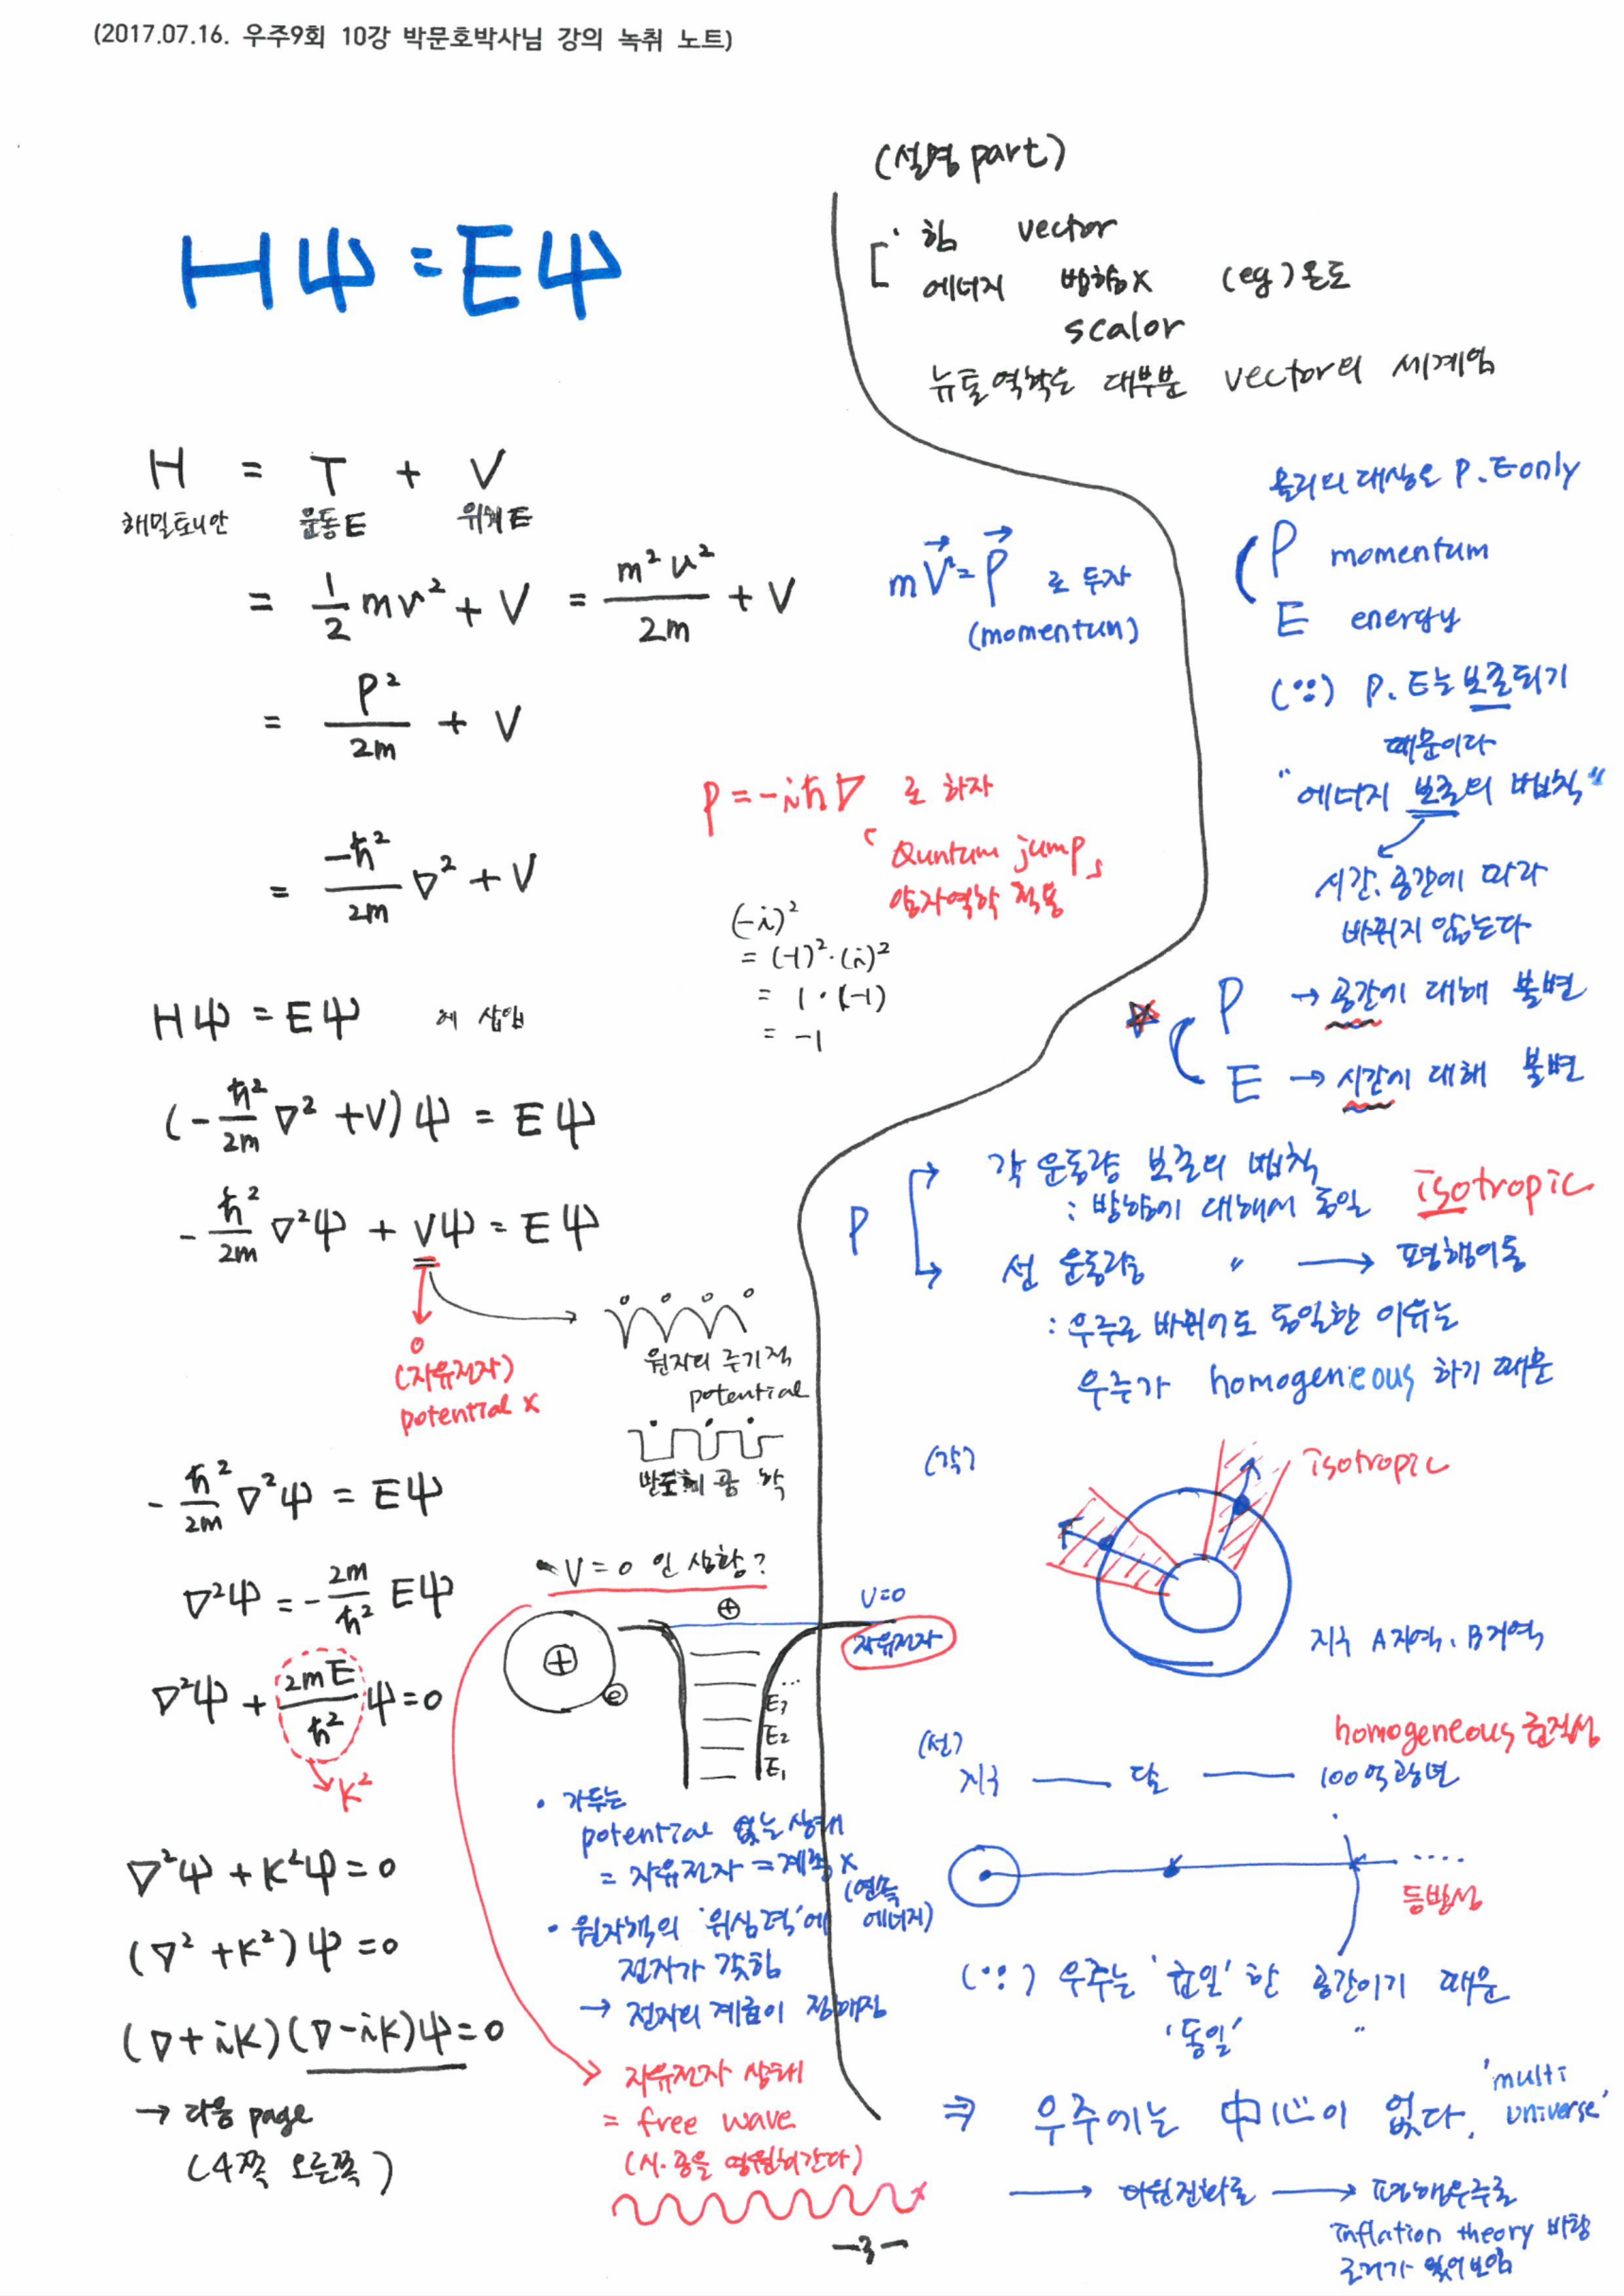 (2017.07.16. 우주9회 10강 박문호박사님 강의 녹취 노트)
Hψ = Eψ
H = T + V
해밀토니안 운동E 위치E
= 1/2 mv² + V = m²v²/2m + V
mV⃗ = P⃗ 로 두자
(momentum)
= P²/2m + V
P = -iħ∇ 로 하자
「Quntum jump」
양자역학 적용
= -ħ²/2m ∇² + V
(-i)²
= (-1)²·(i)²
= 1·(-1)
= -1
Hψ = Eψ 에 삽입
(-ħ²/2m ∇² + V)ψ = Eψ
-ħ²/2m ∇²ψ + Vψ = Eψ
0
(자유전자)
potential x
원자의 주기적
potential
반도체 공학
-ħ²/2m ∇²ψ = Eψ
∇²ψ = -2m/ħ² Eψ
∇²ψ + 2mE/ħ² ψ = 0
K²
∇²ψ + K²ψ = 0
(∇² + K²)ψ = 0
(∇ + iK)(∇ - iK)ψ = 0
→ 다음 page
(4쪽 오른쪽)
V = 0 인 상황?
⊕
V=0
자유전자
⊕
e
...
E₃
E₂
E₁
• 가두는
potential 없는 상태
= 자유전자 = 계층 x
(연속
에너지)
• 원자핵의 '위심력'에
전자가 갖힘
→ 전자의 계층이 정해짐
자유전자 상태
= free wave
(시·공을 영원히 간다)
(설명 part)
힘 vector
에너지 방향x (eg) 온도
scalor
뉴톤역학은 대부분 vector의 세계임
물리의 대상은 P. E only
P momentum
E energy
(∵) P. E는 보존되기
때문이다
"에너지 보존의 법칙"
시간. 공간에 따라
바뀌지 않는다
P → 공간에 대해 불변
E → 시간에 대해 불변
P
각 운동량 보존의 법칙
: 방향에 대해서 동일 isotropic
선 운동량 〃 → 평행이동
: 우주로 바뀌어도 동일한 이유는
우주가 homogeneous 하기 때문
(각)
isotropic
지구 A지역, B지역
(선)
homogeneous 균질성
지구 — 달 — 100억 광년
....
등방성
(∵) 우주는 '균일'한 공간이기 때문
'동일' 〃
⇒ 우주에는 中心이 없다.
'multi
universe'
→ → 평행우주로
inflation theory 바탕
근거가 있어보임
-3-